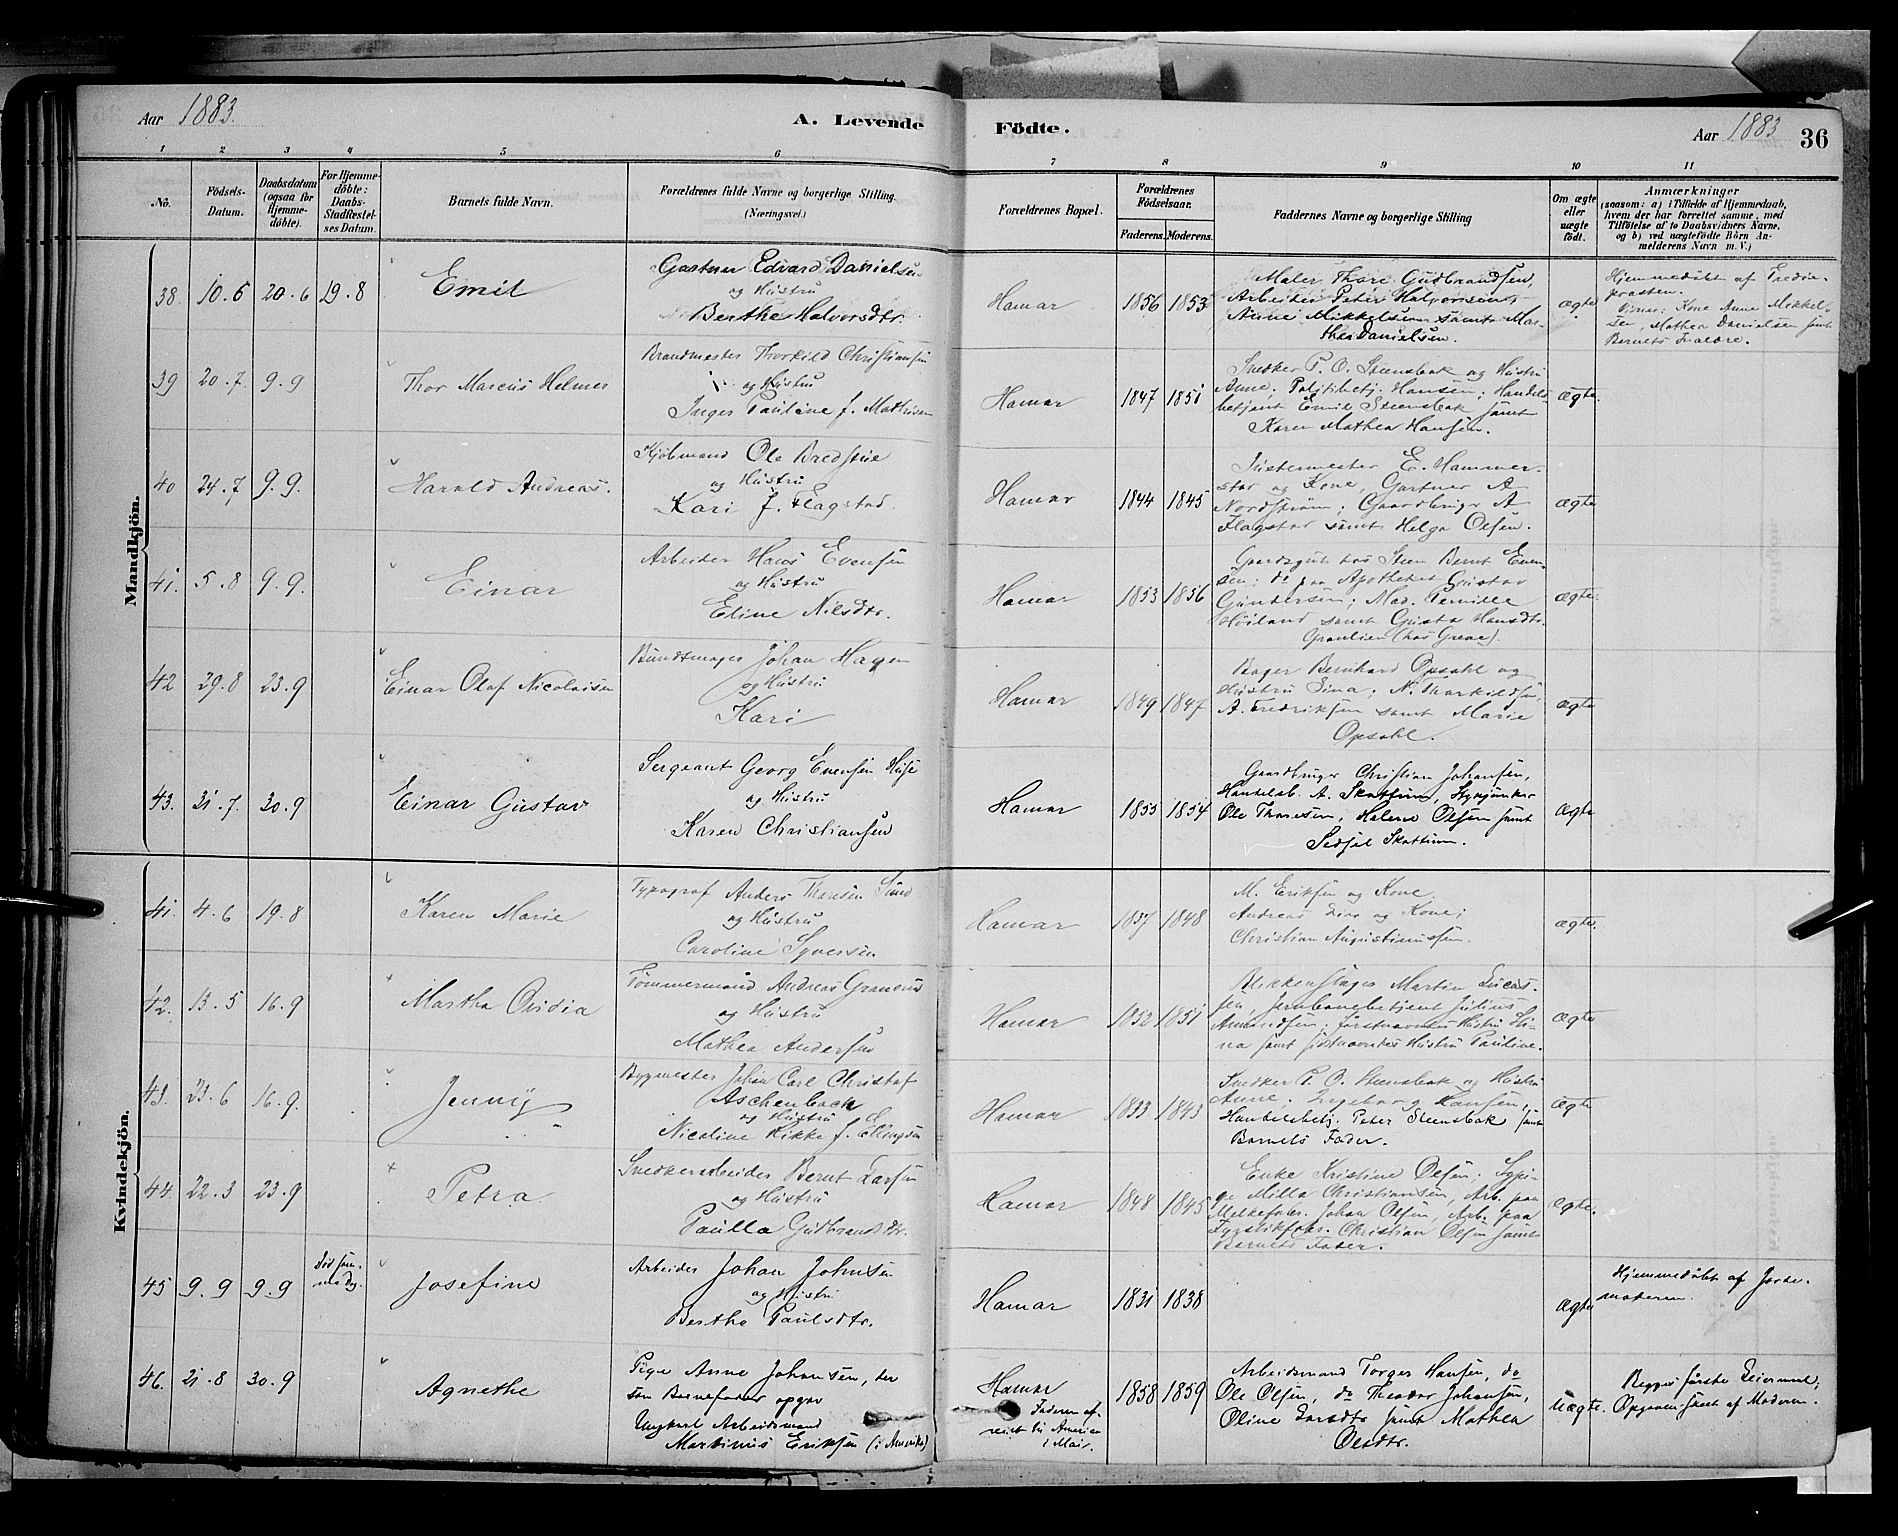 Aar 1883.
A. Levende Födte.
Aar 1883
36
1 2 3 4 5 6 7 8 9 10 11
No.
Födsels-Datum.
Daabsdatum (ogsaa for Hjemmedöbte).
For Hjemmedöbte: Daabs-Stadfæstelses Datum.
Barnets fulde Navn.
Forældrenes fulde Navne og borgerlige Stilling. (Næringsvei.)
Forældrenes Bopæl.
Forældrenes Födselsaar.
Faderens. Moderens.
Faddernes Navne og borgerlige Stilling
Om ægte eller uægte födt.
Anmærkninger
(saasom: a) i Tilfælde af Hjemmedaab, hvem der har forrettet samme, med Tilföielse af to Daabsvidners Navne, og b) ved uægtefödte Börn Anmelderens Navn m. V.)
Mandkjön.
38. 10.6 20.6 19.8
Emil
Gartner Edvard Danielsen
og Hustru
Berthe Halvorsdtr.
Hamar 1856 1853
Maler Thore Gudbrandsen,
Arbeider Peter Halvorsen,
Anne Mikkelsen samt Mar-
thea Danielsen.
ægte
Hjemmedöbt af
presten.
Kone Anne Mikkel-
sen, Mathea Danielsen samt
Barnets Forældre.
39 20.7. 9.9
Thor Marcus Helmer
Brandmester Thorkild Christiansen
og Hustru
Inger Pauline f. Mathisen
Hamar 1847 1851
Snedker P. O. Steensbak og Hustru
Anne, Politibetj. Hansen; Handels-
betjent Emil Steensbak samt
Karen Mathea Hansen.
ægte.
40 24.7 9.9.
Harald Andreas.
Kjöbmand Ole Bredstue
og Hustru
Kari f. Flagstad.
Hamar 1844 1845
E. Hammer-
stad og Kone, Gartner A
Nordström; Gaardbruger A
Flagstad samt Helga Olsen.
ægte
41. 5.8 9.9.
Einar
Arbeider Hans Evensen
og Hustru
Eline Nilsdtr.
Hamar 1853 1856
Gaardsgut hos Steen Bernt Even-
sen; do paa Apotheket Gustav
Gundersen; Mad. Pernille
Höiland samt Gusta Hansdtr.
Graulien (hos Greve).
ægte.
42 29.8 23.9
Einar Olaf Nicolaisen
Bundtmager Johan Hagen
og Hustru
Kari
Hamar 1849 1847
Bager Bernhard Opsahl og
Hustru Lina; N. Thorkildsen,
A. Fredriksen samt Marie
Opsahl.
ægte
43. 31.7. 30.9
Einar Gustav
Sergeant Georg Evensen
og Hustru
Karen Christiansen
Hamar 1855 1854
Gaardbruger Christian Johansen,
Handelsb. A. Skattum,
Ole Thoresen, Helene Olsen samt
Sedsel Skattum.
ægte
Kvindekjön.
41. 4.6 19.8
Karen Marie
Typograf Anders Thorsen Sund
og Hustru
Caroline Syversen
Hamar 1857 1848
M. Eriksen og Kone,
Andreas Lien og Kone;
Christian Augustinussen.
ægte.
42. 13.5 16.9
Martha Ovidia
Tömmermand Andreas Granerud
og Hustru
Mathea Andersen
Hamar 1852 1851
Blikkenslager Martin Lucas-
sen, Jernbanebetjent Julius
Amundsen; förstnævntes Hustru Sti-
na samt sidstnævntes Hustru Pauline.
ægte
43. 23.6 16.9.
Jenny
Bygmester Johan Carl Christof
Aschenbach
og Hustru
Nicoline Rikke f. Ellingsen
Hamar 1833 1843
Snedker P. O. Steensbak og Hustru
Anne, Ingeborg Hansen,
Handelsbetj. Peter Steensbak samt
Barnets Fader.
ægte
44. 22.3 23.9
Petra
Snedkerarbeider Bernt Larsen
og Hustru
Paulla Gudbrandsdtr.
Hamar 1848 1845
Enke Kristine Olsen; Sypi-
ge Milla Christiansen, Arb. paa
Melkefabr. Johan Olsen, Arb. paa
Christian Olsen samt
Barnets Fader.
ægte.
45 9.9 9.9
Död sam-
me Dag.
Josefine
Arbeider Johan Johnsen
og Hustru
Berthe Paulsdtr.
Hamar 1831 1838
ægte
Hjemmedöbt af Jorde-
moderen.
46. 21.8 30.9
Agnethe
Pige Anne Johansen, der
som Barnefader opgav
Ungkarl Arbeidsmand
Martinus Eriksen (i Amerika)
Hamar
Faderen af-
reist til Amerika
i Mai.
1858 1859
Arbeidsmand Torger Hansen, do
Ole Olsen, do Theodor Johansen,
Oline Larsdtr samt Mathea
Olsdtr.
Uægte.
Begges förste Leiermaal;
Opgivensamt af Moderen.